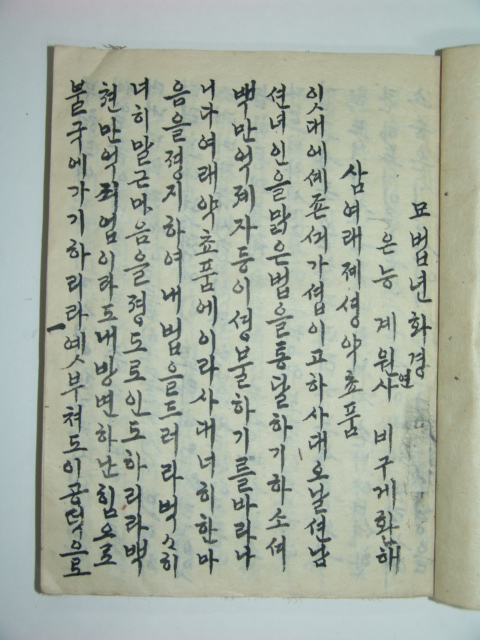 묘법년화경
은능 계원사 비구계환해
연
삼여래졔셩약쵸품
잇대에셰죤셔가셥이고하사대오날션남
션녀인을맑은법을통달하기하소셔
백만억졔자등이셩불하기를바라나
니다여래약쵸품에이라사대녀희한마
음을졍지하여내법을드러라벽
녀희말근마음을졍도로인도하리라백
쳔만억죄업이라도내방변하난힘으로
불구에가기하리라옛부쳐도이공덕으로